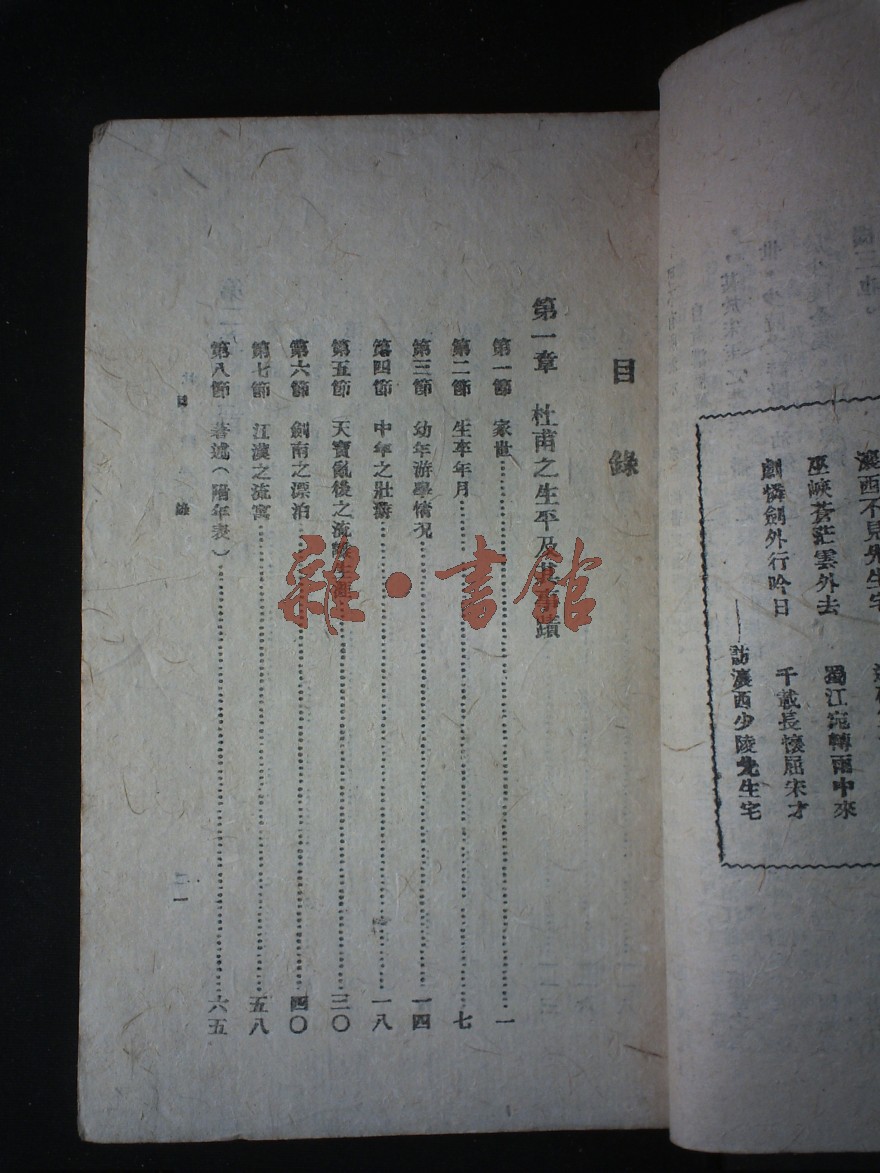 瀼西不見先生宅
巫峽蒼茫雲外去 蜀江宛轉雨中來
劇憐劍外行吟日 千載長懷屈宋才
——訪瀼西少陵先生宅
目錄
第一章 杜甫之生平及其事蹟
第一節 家世……一
第二節 生卒年月……七
第三節 幼年游學情况……一四
第四節 中年之壯游……一八
第五節 天寶亂後之流離生涯……三〇
第六節 劍南之漂泊……四〇
第七節 江漢之流寓……五八
第八節 著述(附年表)……六五
目錄
一
雜·書館